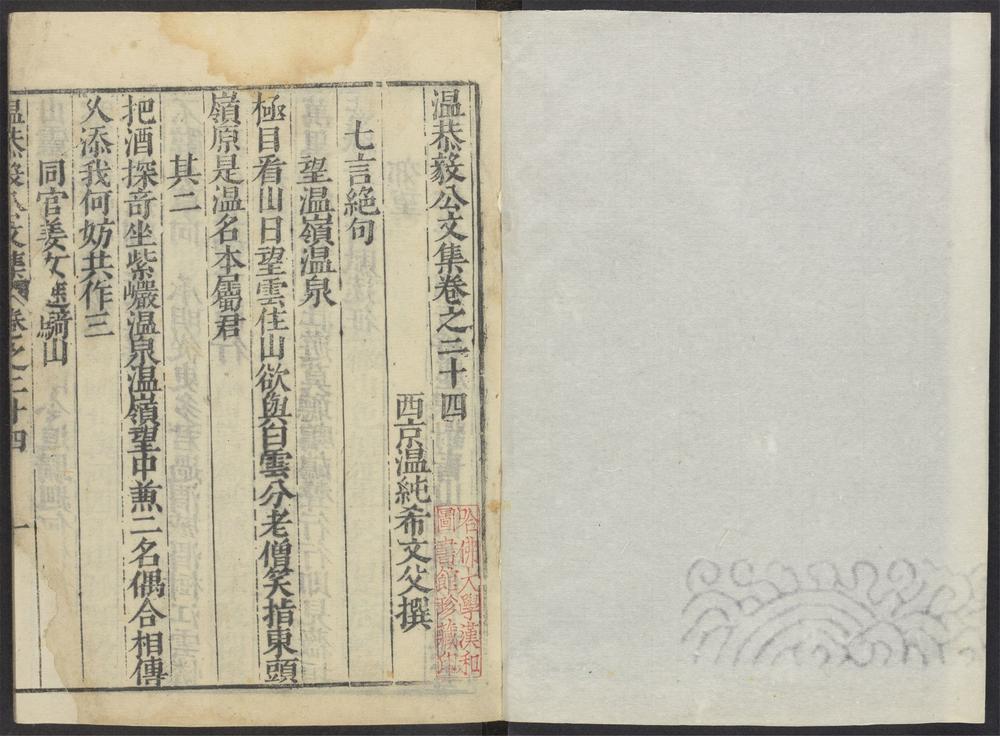 温恭毅公文集卷之二十四
西京温純希文父撰
七言絶句
望温嶺温泉
極目看山日望雲住山欲與白雲分老僧笑指東頭
嶺原是温名本屬君
其二
把酒探奇坐紫巖温泉温嶺望中兼二名偶合相傳
久添我何妨共作三
同官姜女
山
温恭毅公文集 卷之二十四 一
哈佛大學漢和
圖書館珍藏印